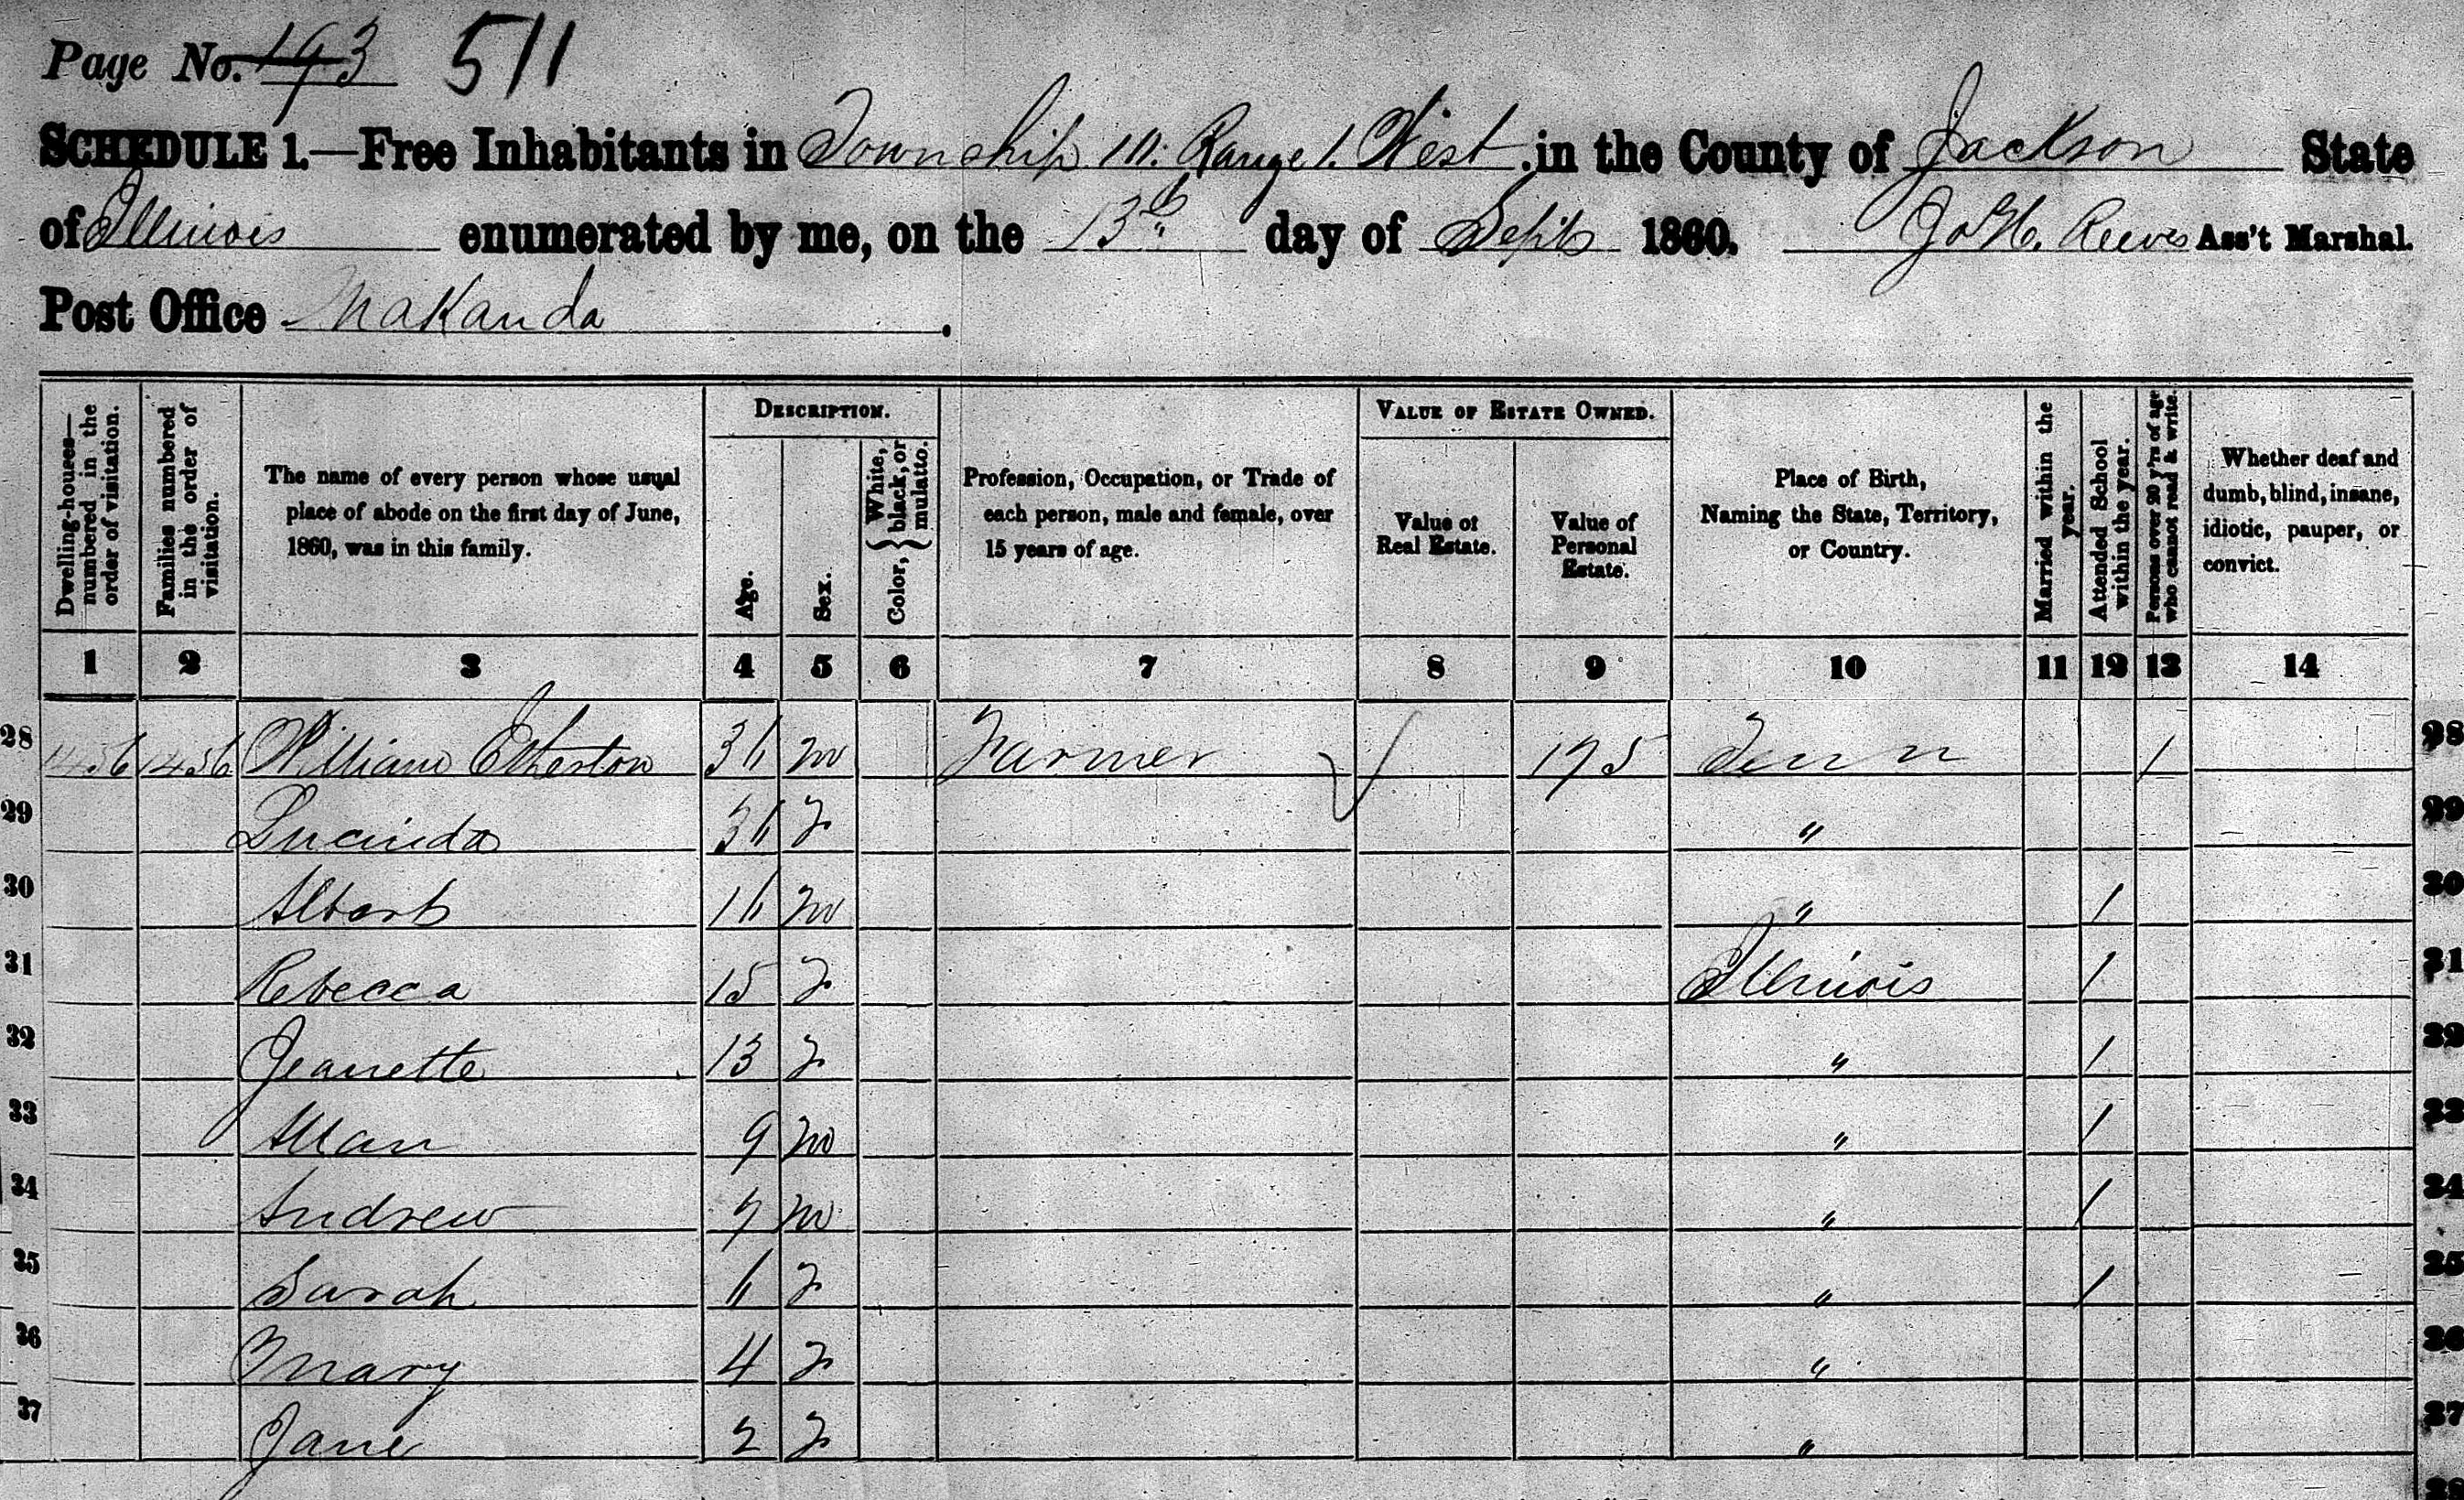 Page No. 193 511
SCHEDULE 1.—Free Inhabitants in Township 10. Range 1. West. in the County of Jackson State
of Illinois enumerated by me, on the 13th day of Sept 1860. Reeves Ass't Marshal.
Post Office Makanda.
DESCRIPTION. VALUE OF ESTATE OWNED.
Dwelling-houses—numbered in the order of visitation.
Families numbered in the order of visitation.
The name of every person whose usual
place of abode on the first day of June,
1860, was in this family.
Age.
Sex.
Color, { White, black, or mulatto. }
Profession, Occupation, or Trade of
each person, male and female, over
15 years of age.
Value of
Real Estate.
Value of
Personal
Estate.
Place of Birth,
Naming the State, Territory,
or Country.
Married within the year.
Attended School within the year.
Persons over 20 y'rs of age who cannot read & write.
Whether deaf and
dumb, blind, insane,
idiotic, pauper, or
convict.
1 2 3 4 5 6 7 8 9 10 11 12 13 14
28 1456 1456 William Etherton 36 m Farmer 175 Tenn / 28
29 Lucinda 36 F " 29
30 Albert 16 m " / 30
31 Rebecca 15 F Illinois / 31
32 Jeanette 13 F " / 32
33 Allan 9 m " / 33
34 Andrew 7 m " / 34
35 Sarah 6 F " / 35
36 Mary 4 F " 36
37 Jane 2 F " 37